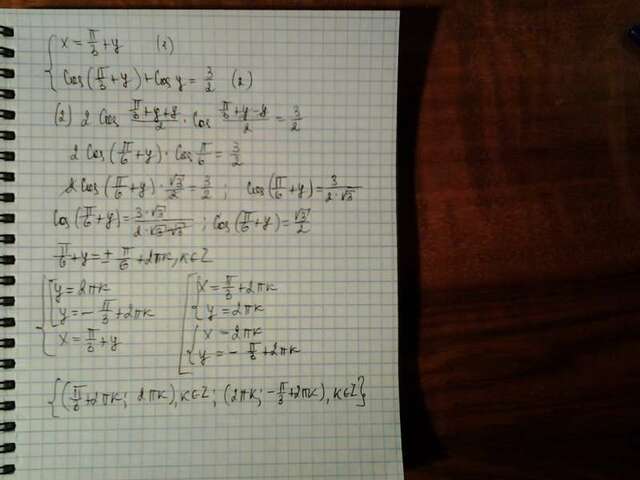 { x = π/3 + y (1)
Cos(π/3 + y) + Cos y = 3/2 (2)
(2) 2 Cos (π/3 + y + y)/2 · Cos (π/3 + y - y)/2 = 3/2
2 Cos(π/6 + y) · Cos π/6 = 3/2
2 Cos(π/6 + y) · √3/2 = 3/2 ; Cos(π/6 + y) = 3/(2·√3)
Cos(π/6 + y) = 3·√3/(2·√3·√3) ; Cos(π/6 + y) = √3/2
π/6 + y = ± π/6 + 2πk, k∈Z
{ [ y = 2πk
y = - π/3 + 2πk
x = π/3 + y
[ { x = π/3 + 2πk
y = 2πk
{ x = 2πk
y = - π/3 + 2πk
{(π/3 + 2πk; 2πk), k∈Z; (2πk; -π/3 + 2πk), k∈Z}